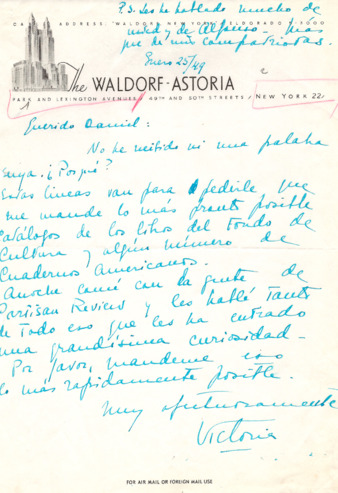 P.S. Les he hablado mucho de
usted y de Alfonso. Más
que de mis compatriotas.
Enero 25/49
The WALDORF-ASTORIA
PARK AND LEXINGTON AVENUES 49TH AND 50TH STREETS NEW YORK 22
Querido Daniel:
No he recibido ni una palabra
suya. ¿Porqué?
Estas líneas van para pedirle que
me mande lo más pronto posible
catálogos de los libros del Fondo de
Cultura y algún número de
Cuadernos Americanos.
Anoche comí con la gente de
Partisan Review y les hablé tanto
de todo eso que les ha entrado
una grandísima curiosidad.
Por favor, mandeme eso
lo más rapidamente posible.
Muy afectuosamente
Victoria
FOR AIR MAIL OR FOREIGN MAIL USE